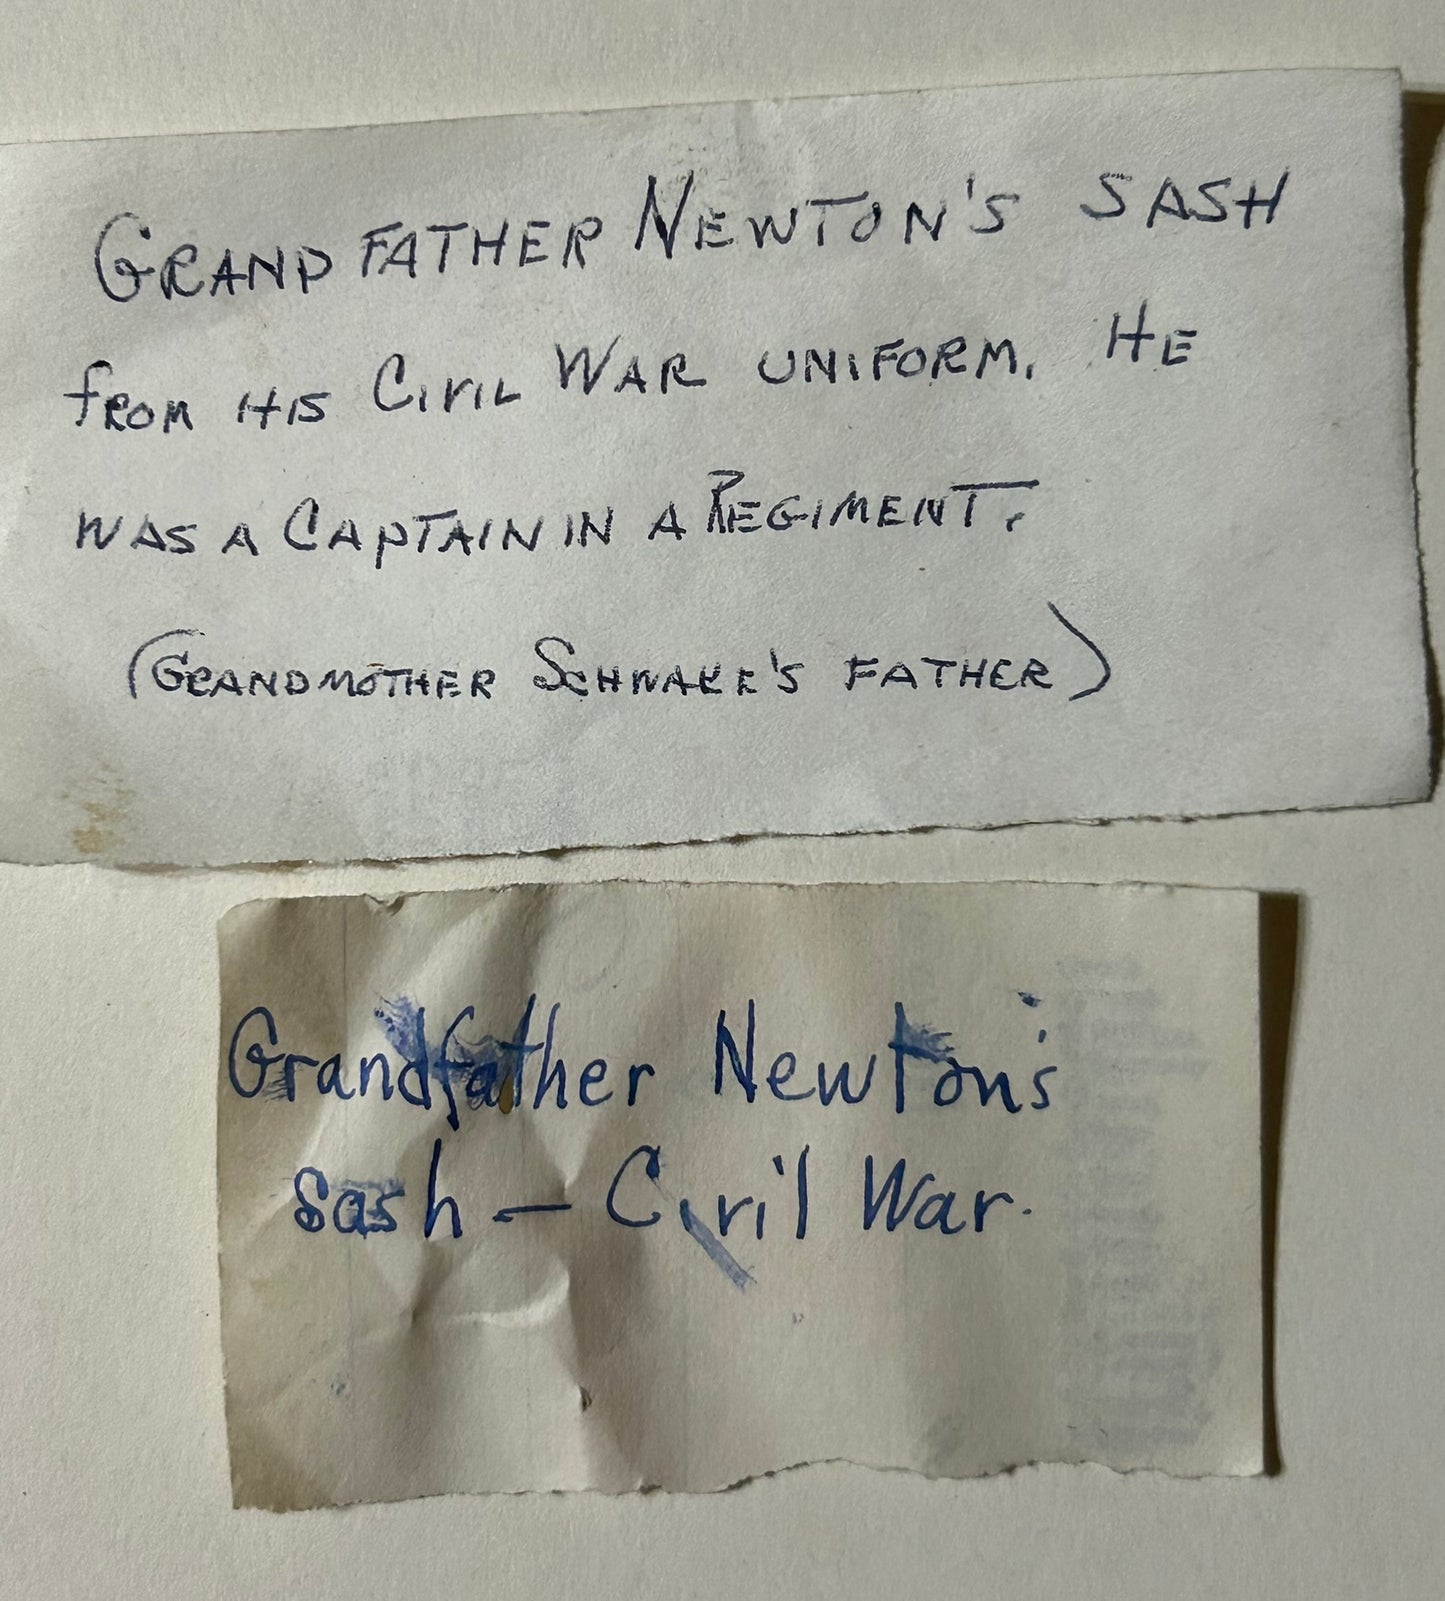 GRANDFATHER NEWTON'S SASH
fROM HIS CIVIL WAR UNIFORM. HE
WAS A CAPTAIN IN A REGIMENT.
(GRANDMOTHER SCHWAKE'S FATHER)
Grandfather Newton's
sash — Civil War.